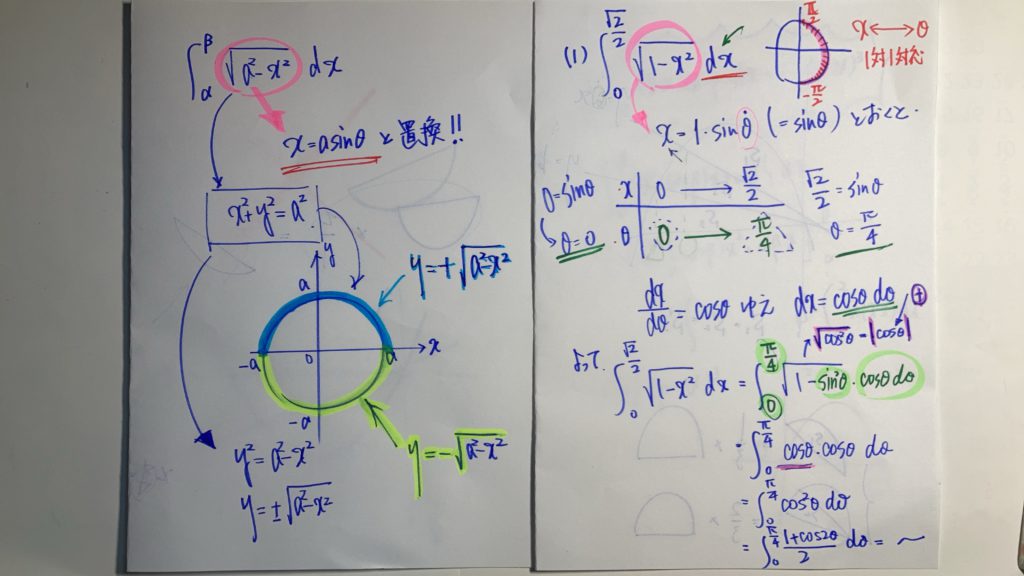 ∫_α^β √(a²-x²) dx
x=asinθ と置換!!
x²+y²=a²
y
a
y=+√(a²-x²)
-a 0 a x
-a
y=-√(a²-x²)
y²=a²-x²
y=±√(a²-x²)
(1) ∫_0^{√2/2} √(1-x²) dx
π/2
-π/2
x⟷θ
1対1対応
x=1・sinθ (=sinθ) とおくと.
0=sinθ
θ=0
x 0 → √2/2
θ 0 → π/4
√2/2=sinθ
θ=π/4
dx/dθ=cosθ ゆえ dx=cosθdθ
√cos²θ=|cosθ| +
よって. ∫_0^{√2/2} √(1-x²) dx = ∫_0^{π/4} √(1-sin²θ)・cosθdθ
=∫_0^{π/4} cosθ・cosθ dθ
=∫_0^{π/4} cos²θdθ
=∫_0^{π/4} (1+cos2θ)/2 dθ = 〜